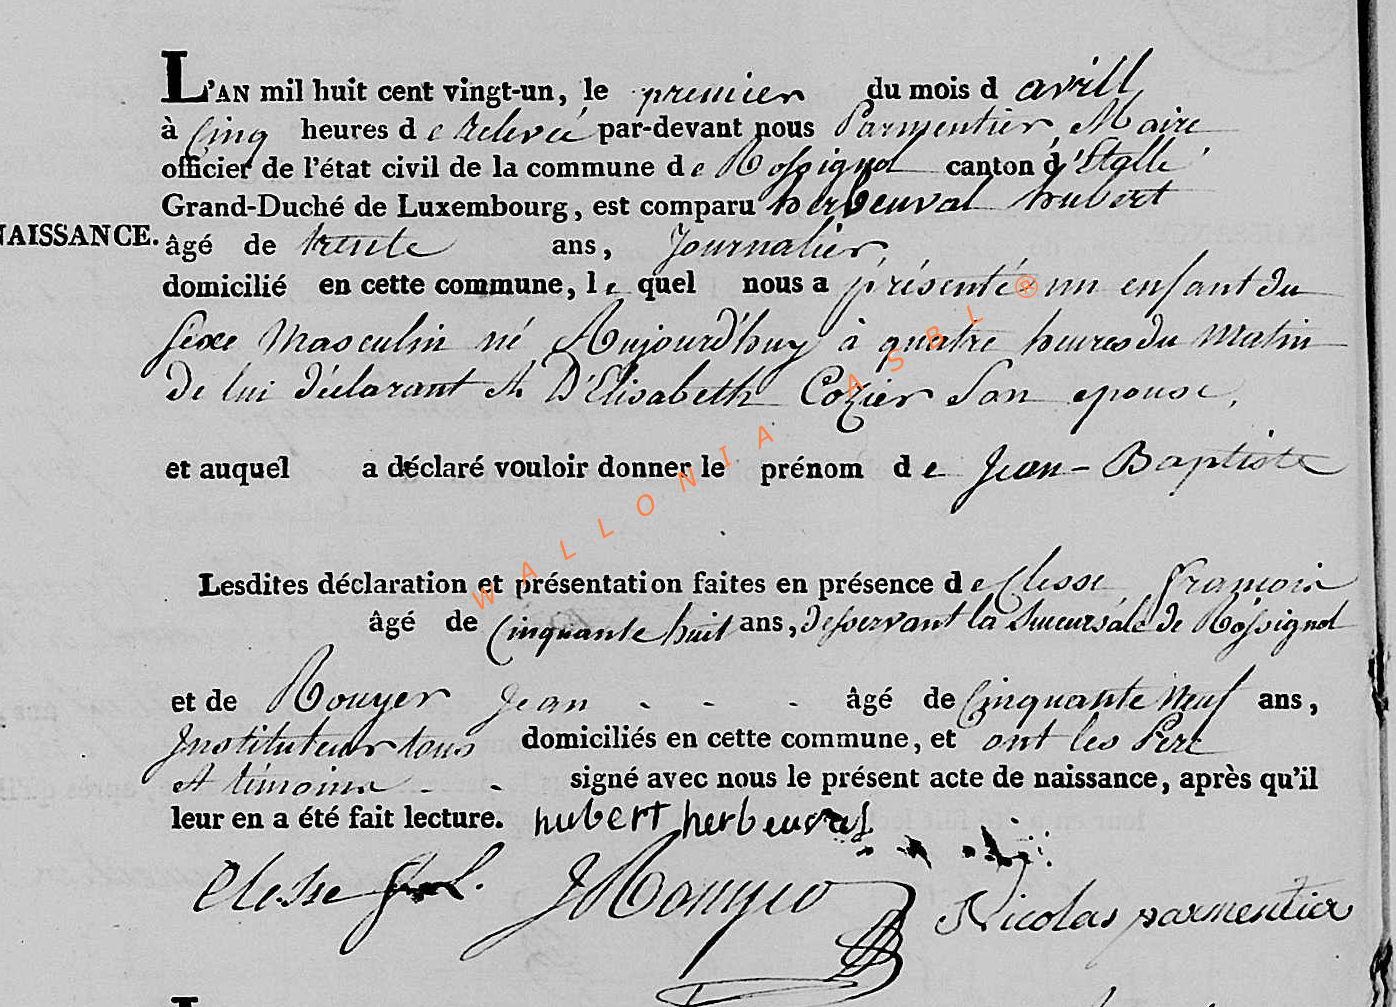 L'AN mil huit cent vingt-un, le premier du mois d avrill
à Cinq heures de Relevée par-devant nous Parmentier Maire
officier de l'état civil de la commune de Rossignol canton d'Etalle
Grand-Duché de Luxembourg, est comparu herbeuval hubert
NAISSANCE. âgé de trente ans, Journalier,
domicilié en cette commune, le quel nous a présenté un enfant du
sexe Masculin né Aujourd'huy à quatre heures du Matin
de lui déclarant et D'Elisabeth Cozier Son epouse,
et auquel a déclaré vouloir donner le prénom de Jean-Baptiste
Lesdites déclaration et présentation faites en présence de Clesse François
âgé de Cinquante huit ans, desservant la Succursale de Rossignol
et de Rouyer Jean - - - âgé de Cinquante Neuf ans,
Instituteur tous domiciliés en cette commune, et ont les Pere
et témoins - - signé avec nous le présent acte de naissance, après qu'il
leur en a été fait lecture. hubert herbeuval
Clesse JRouyer Nicolas parmentier
WALLONIA ASBL ®
L